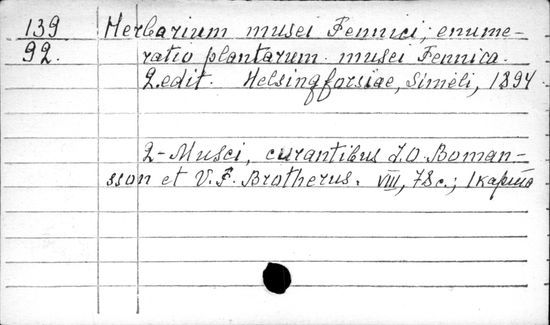 139 Herbarium musei Fennici; enume-
92. ratio plantarum musei Fennica.
2.edit. Helsingforsiae, Simeli, 1894
2-Musci, curantibus J.O.Boman-
sson et V.F.Brotherus. VIII, 78c.; 1 карта